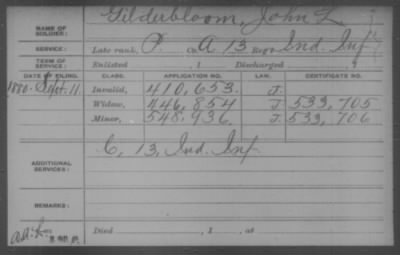 Gilderbloom, John L
NAME OF SOLDIER:
SERVICE: Late rank, P. Co. A 13 Reg't Ind. Inf
TERM OF SERVICE: Enlisted , 1 Discharged , 1
DATE OF FILING. CLASS. APPLICATION NO. LAW. CERTIFICATE NO.
1880. Sept. 11. Invalid, 410,653. J.
Widow, 446,854 J. 533,705
Minor, 548,936. J. 533,706
C, 13, Ind. Inf
ADDITIONAL SERVICES:
REMARKS:
Died , 1 , at